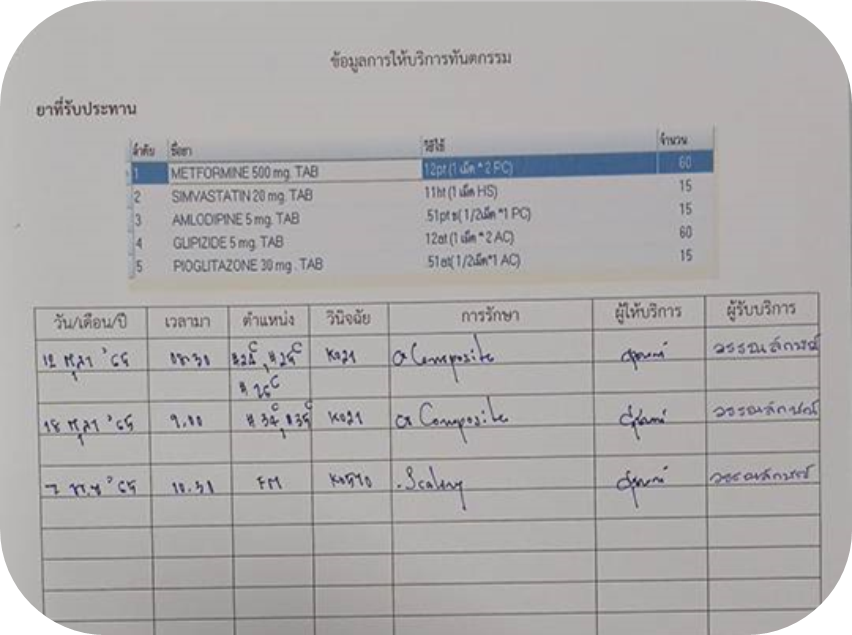 ข้อมูลการให้บริการทันตกรรม
ยาที่รับประทาน
ลำดับ ชื่อยา วิธีใช้ จำนวน
1 METFORMINE 500 mg. TAB 12pt (1 เม็ด * 2 PC) 60
2 SIMVASTATIN 20 mg. TAB 11ht (1 เม็ด HS) 15
3 AMLODIPINE 5 mg. TAB .51pt เช(1/2เม็ด *1 PC) 15
4 GLIPIZIDE 5 mg. TAB 12at (1 เม็ด * 2 AC) 60
5 PIOGLITAZONE 30 mg . TAB .51at( 1/2เม็ด*1 AC) 15
วัน/เดือน/ปี เวลามา ตำแหน่ง วินิจฉัย การรักษา ผู้ให้บริการ ผู้รับบริการ
12 ตุลา '65 08.30 K021 Composite
18 ตุลา '65 9.00 #34 K021 Composite
7 พ.ย '65 10.31 FM Scaling